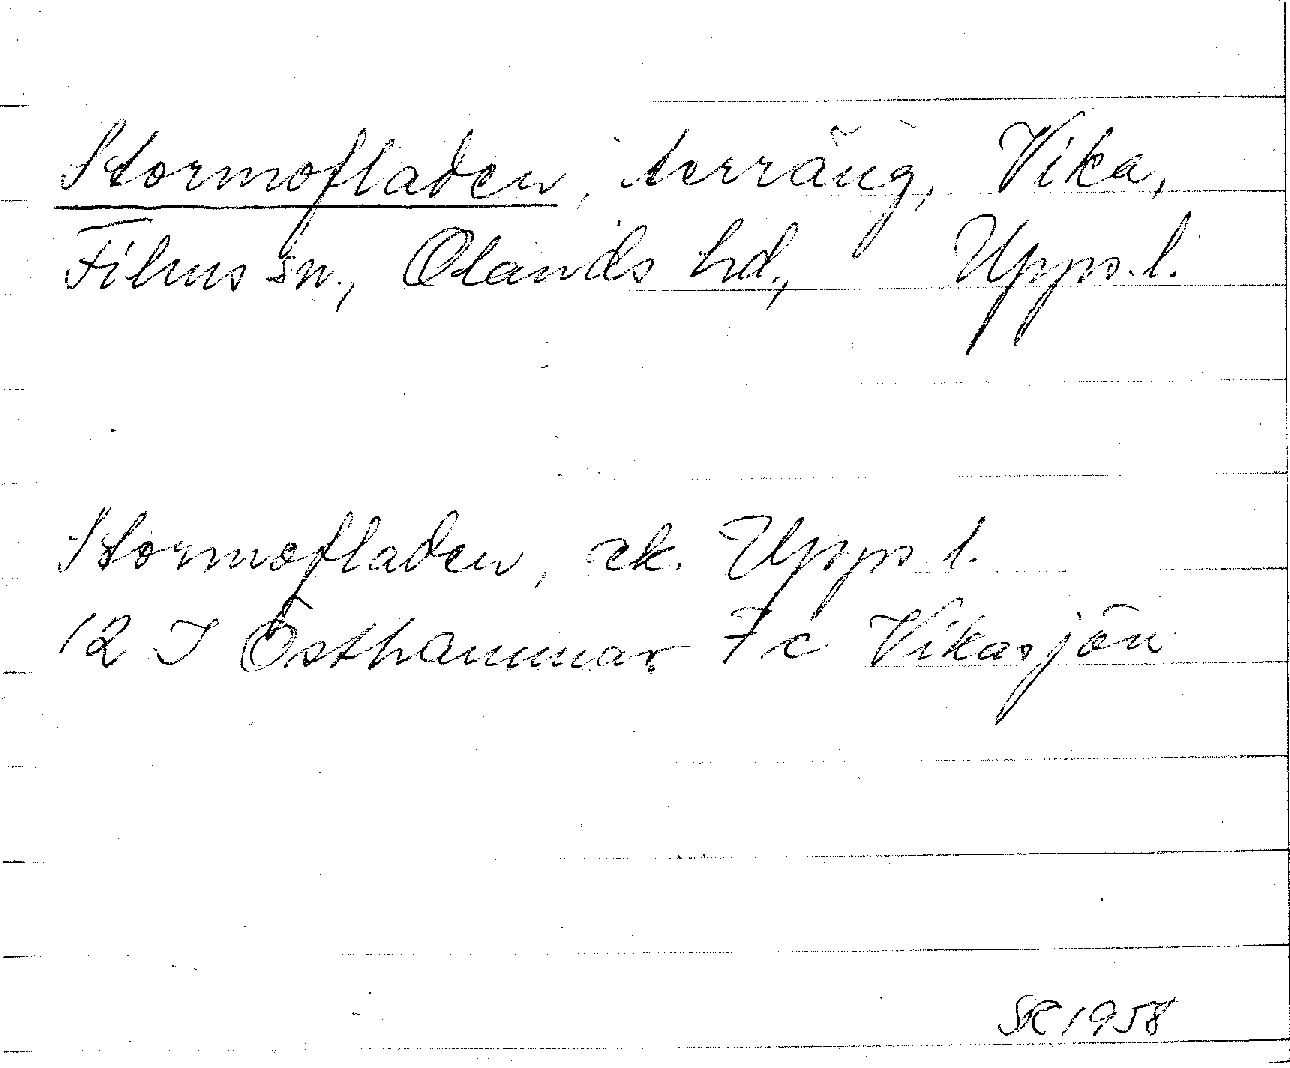 Stormofladen, terräng, Vika,
Films sn., Olands hd., Upps. l.
Stormofladen, ek. Upps l.
12 I Östhammar 7 c Vikasjön
SR 1958